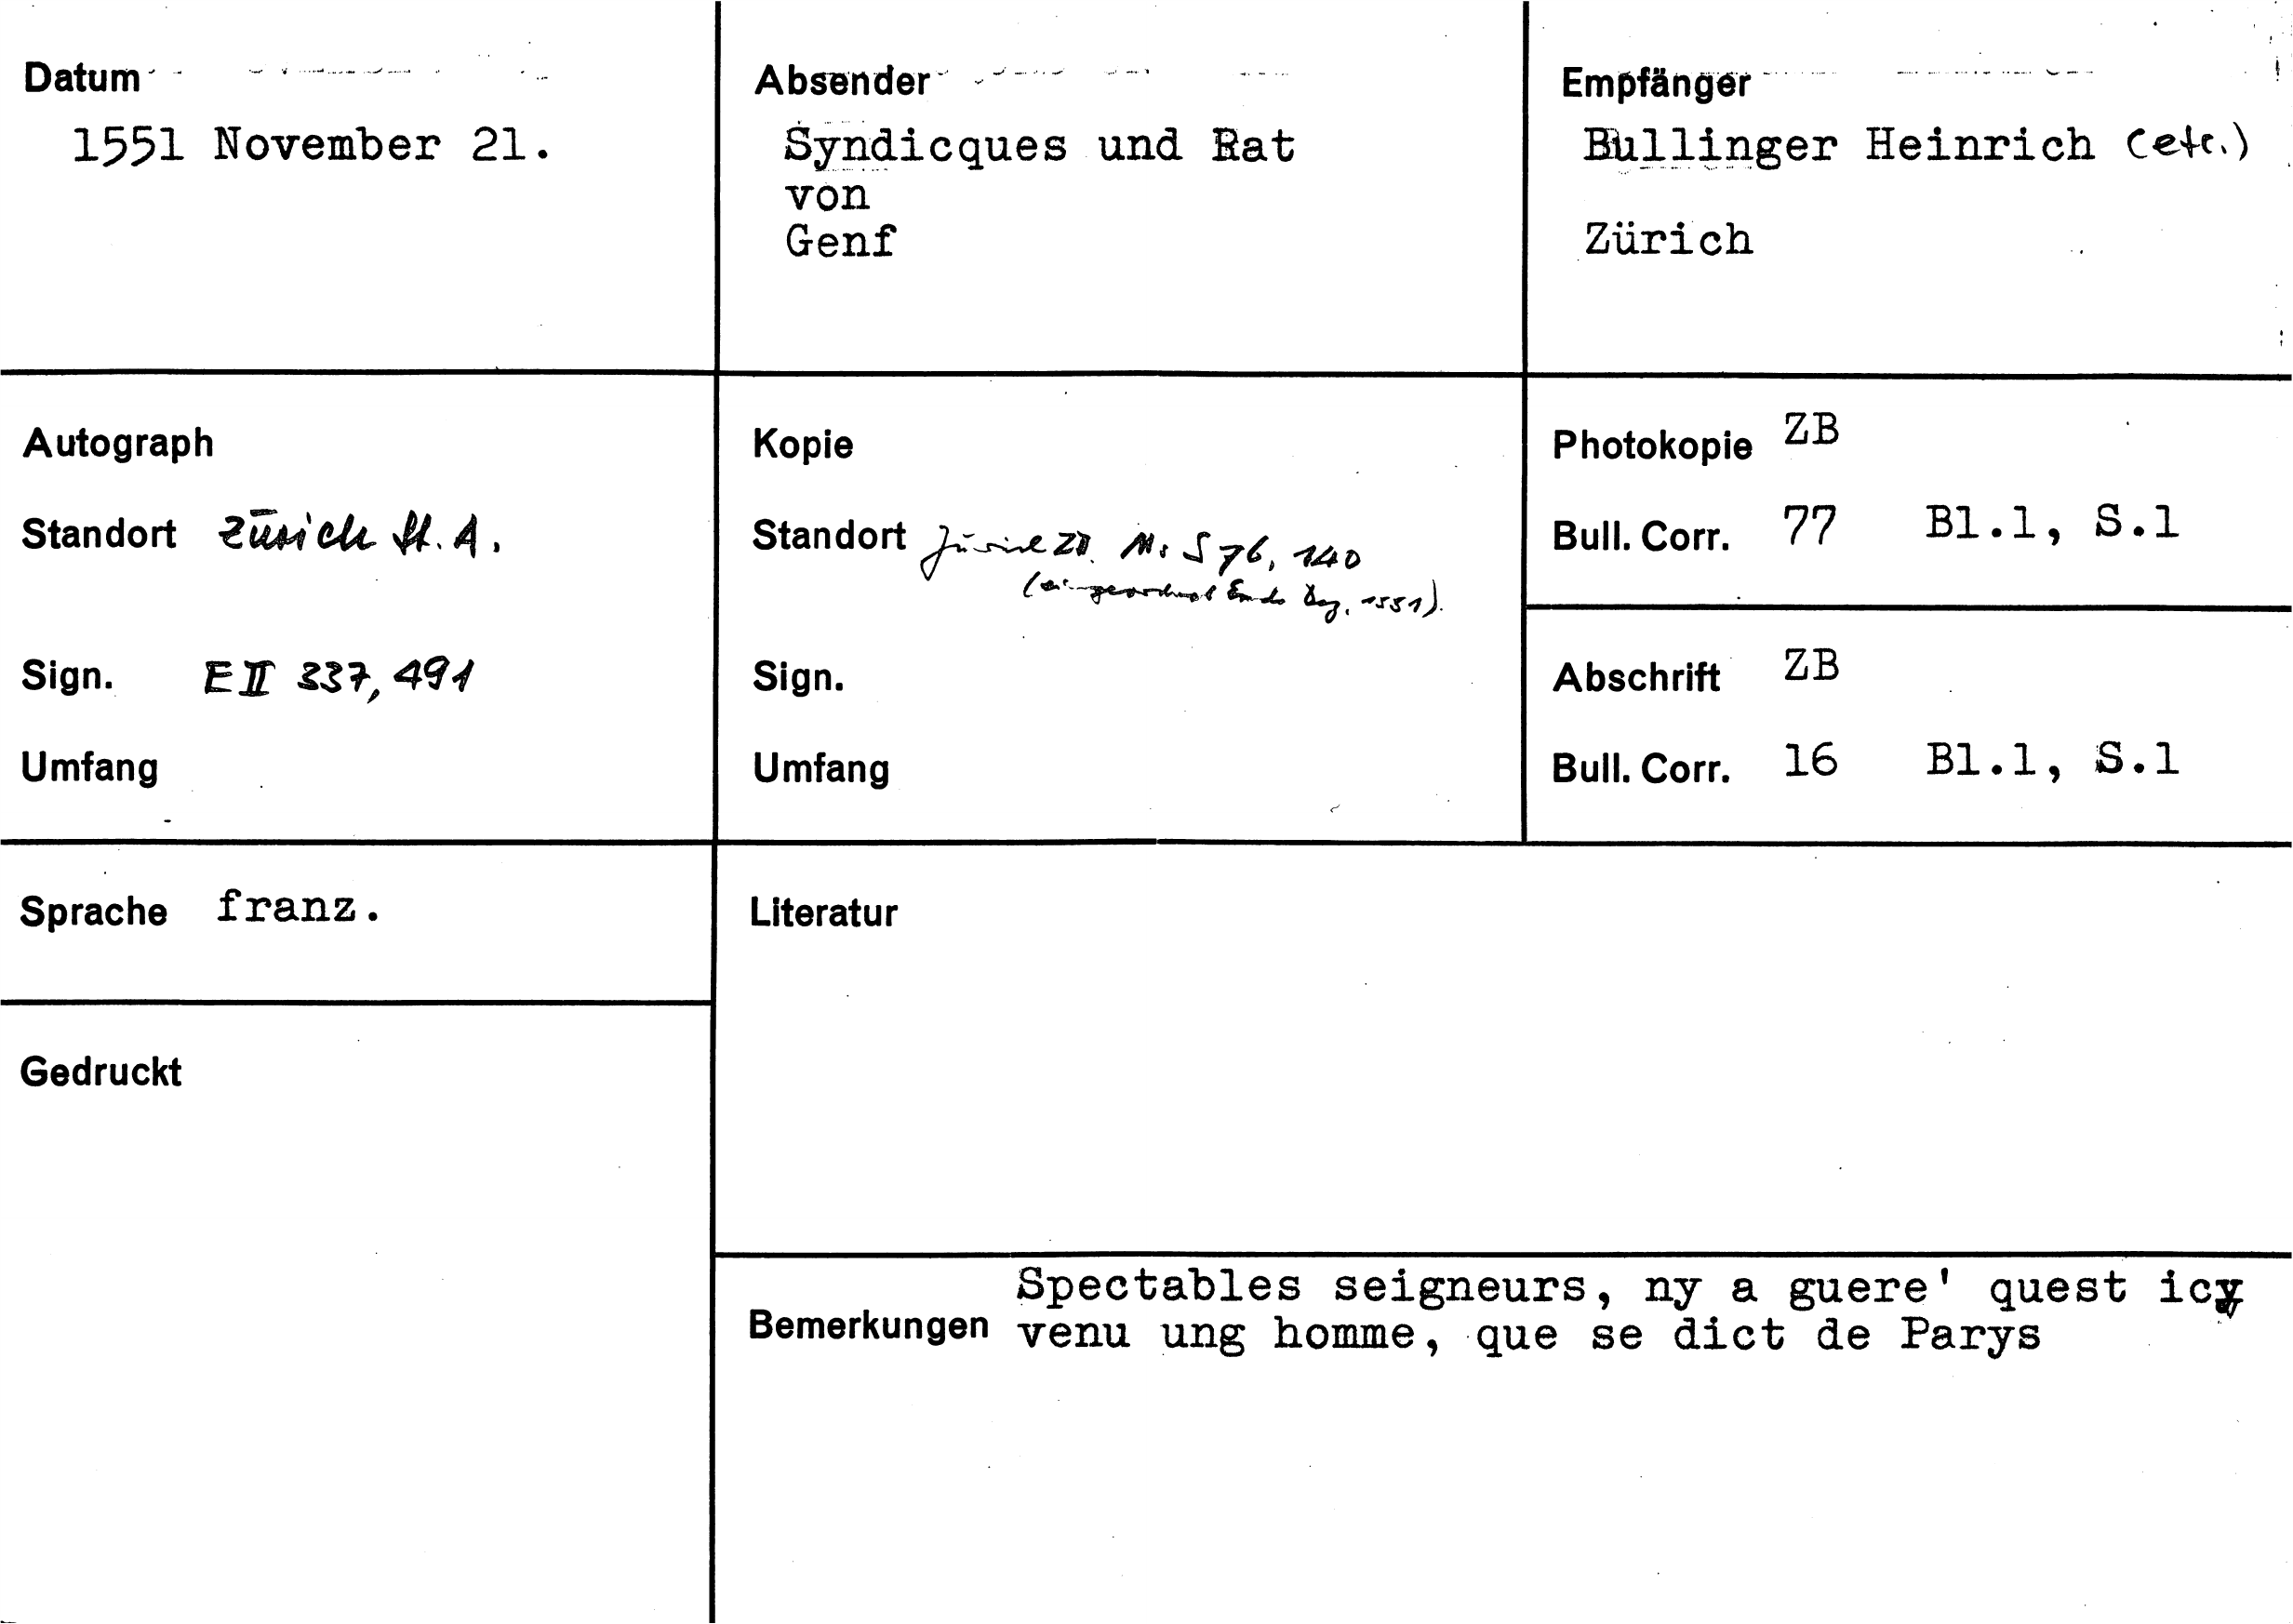 Datum
1551 November 21.
Absender
Syndicques und Rat
von
Genf
Empfänger
Bullinger Heinrich (etc.)
Zürich
Autograph
Standort Zürich St. A.
Sign. E II 337, 491
Umfang
Kopie
Standort Zürich ZB. Ms S 76, 140
(eingeordnet Ende Dez. 1551).
Sign.
Umfang
Photokopie ZB
Bull. Corr. 77 Bl.1, S.1
Abschrift ZB
Bull. Corr. 16 Bl.1, S.1
Sprache franz.
Literatur
Gedruckt
Bemerkungen
Spectables seigneurs, ny a guere' quest icy
venu ung homme, que se dict de Parys